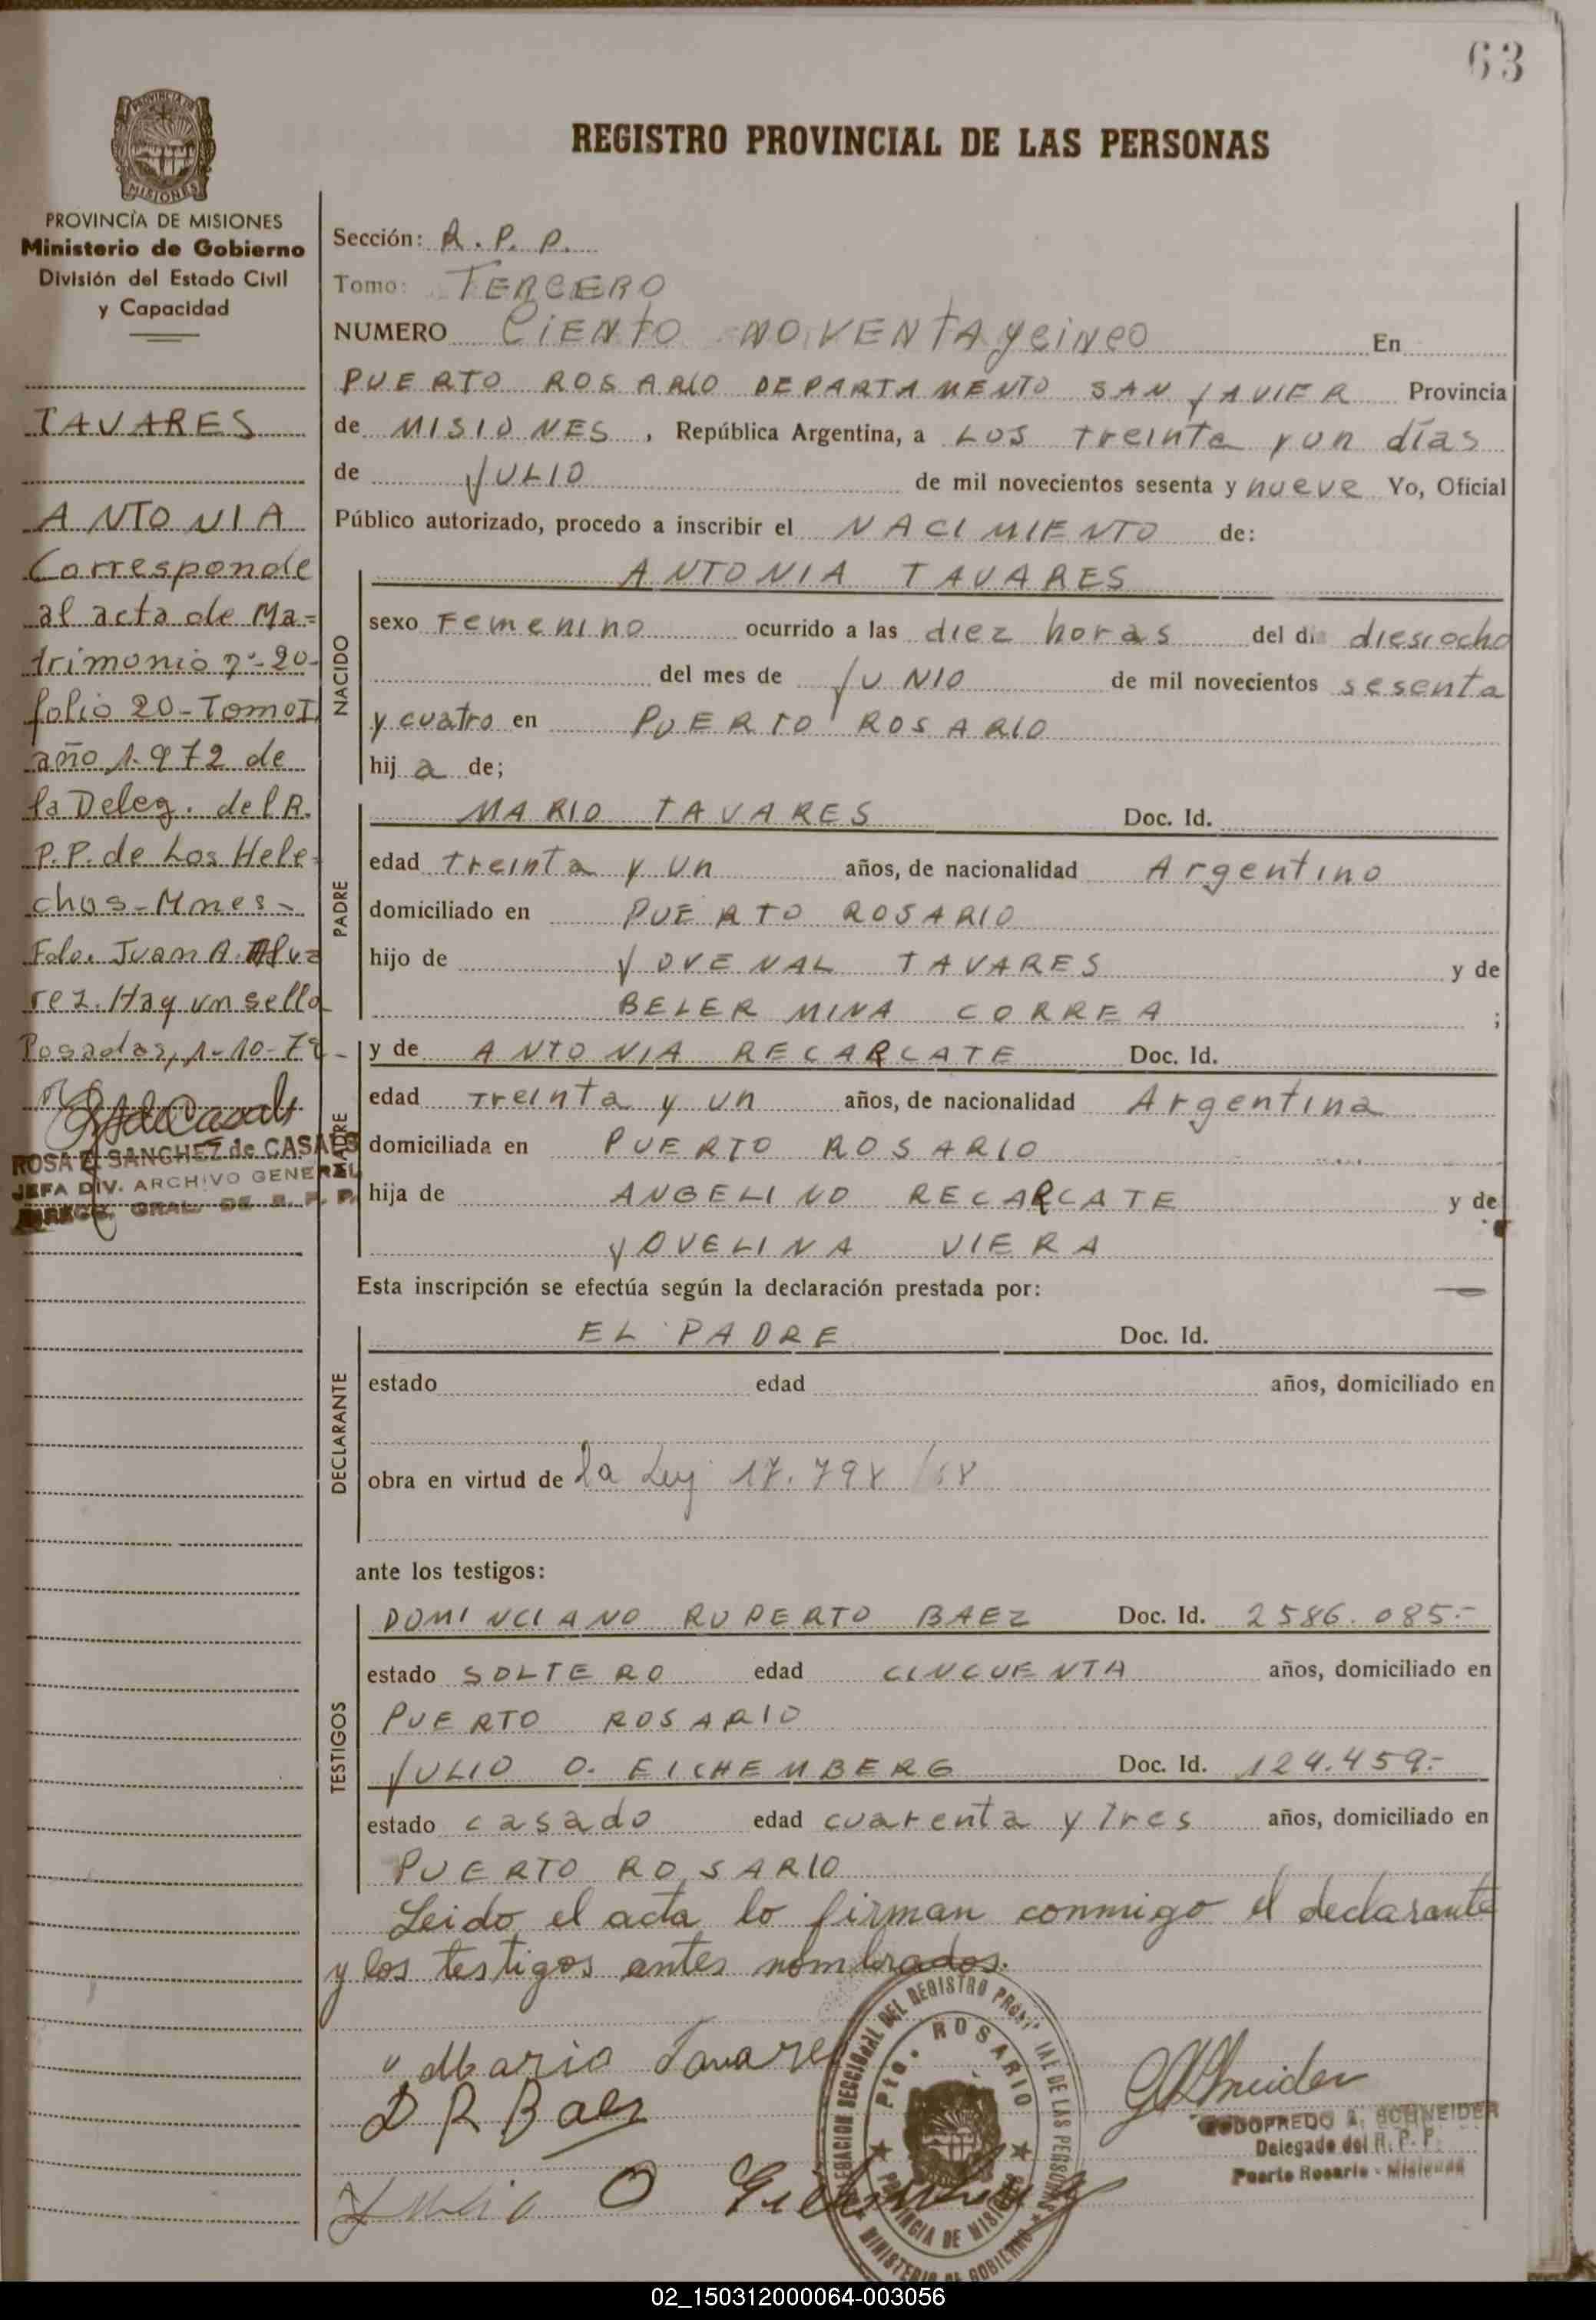 63
PROVINCIA DE MISIONES
PROVINCIA DE MISIONES
Ministerio de Gobierno
División del Estado Civil
y Capacidad
TAVARES
ANTONIA
Corresponde
al acta de Ma=
trimonio nº-20-
folio 20-Tomo I
año 1.972 de
la Deleg. del R.
P.P. de Los Hele=
chos-Mnes-
Fdo. Juan A. Alva
rez. Hay un sello
Posadas, 1-10-79-
ROSA E. SANCHEZ de CASALS
JEFA DIV. ARCHIVO GENERAL
DIRECC. GRAL. DE R. P. P.
REGISTRO PROVINCIAL DE LAS PERSONAS
Sección: R. P. P.
Tomo: TERCERO
NUMERO CIENTO NOVENTA y CINCO En
PUERTO ROSARIO DEPARTAMENTO SAN JAVIER Provincia
de MISIONES, República Argentina, a LOS treinta y un días
de JULIO de mil novecientos sesenta y nueve Yo, Oficial
Público autorizado, procedo a inscribir el NACIMIENTO de:
NACIDO
ANTONIA TAVARES
sexo Femenino ocurrido a las diez horas del día diesiocho
del mes de JUNIO de mil novecientos sesenta
y cuatro en PUERTO ROSARIO
hij a de;
PADRE
MARIO TAVARES Doc. Id.
edad treinta y un años, de nacionalidad Argentino
domiciliado en PUERTO ROSARIO
hijo de JOVENAL TAVARES y de
BELERMINA CORREA ;
MADRE
y de ANTONIA RECARCATE Doc. Id.
edad treinta y un años, de nacionalidad Argentina
domiciliada en PUERTO ROSARIO
hija de ANGELINO RECARCATE y de
JOVELINA VIERA
Esta inscripción se efectúa según la declaración prestada por:
DECLARANTE
EL PADRE Doc. Id.
estado edad años, domiciliado en
obra en virtud de la Ley 17.798/68
ante los testigos:
TESTIGOS
DOMINCIANO RUPERTO BAEZ Doc. Id. 2586.085.-
estado SOLTERO edad CINCUENTA años, domiciliado en
PUERTO ROSARIO
JULIO O. EICHEMBERG Doc. Id. 124.459.-
estado casado edad cuarenta y tres años, domiciliado en
PUERTO ROSARIO
Leido el acta lo firman conmigo el declarante
y los testigos antes nombrados.
Mario Tavares
D R Baez
Julio O
DELEGACION SECCIONAL DEL REGISTRO PROVINCIAL DE LAS PERSONAS
Pto. ROSARIO
PROVINCIA DE MISIONES
MINISTERIO DE GOBIERNO
GASchneider
GODOFREDO A. SCHNEIDER
Delegado del R. P. P.
Puerto Rosario - Misiones
02_150312000064-003056